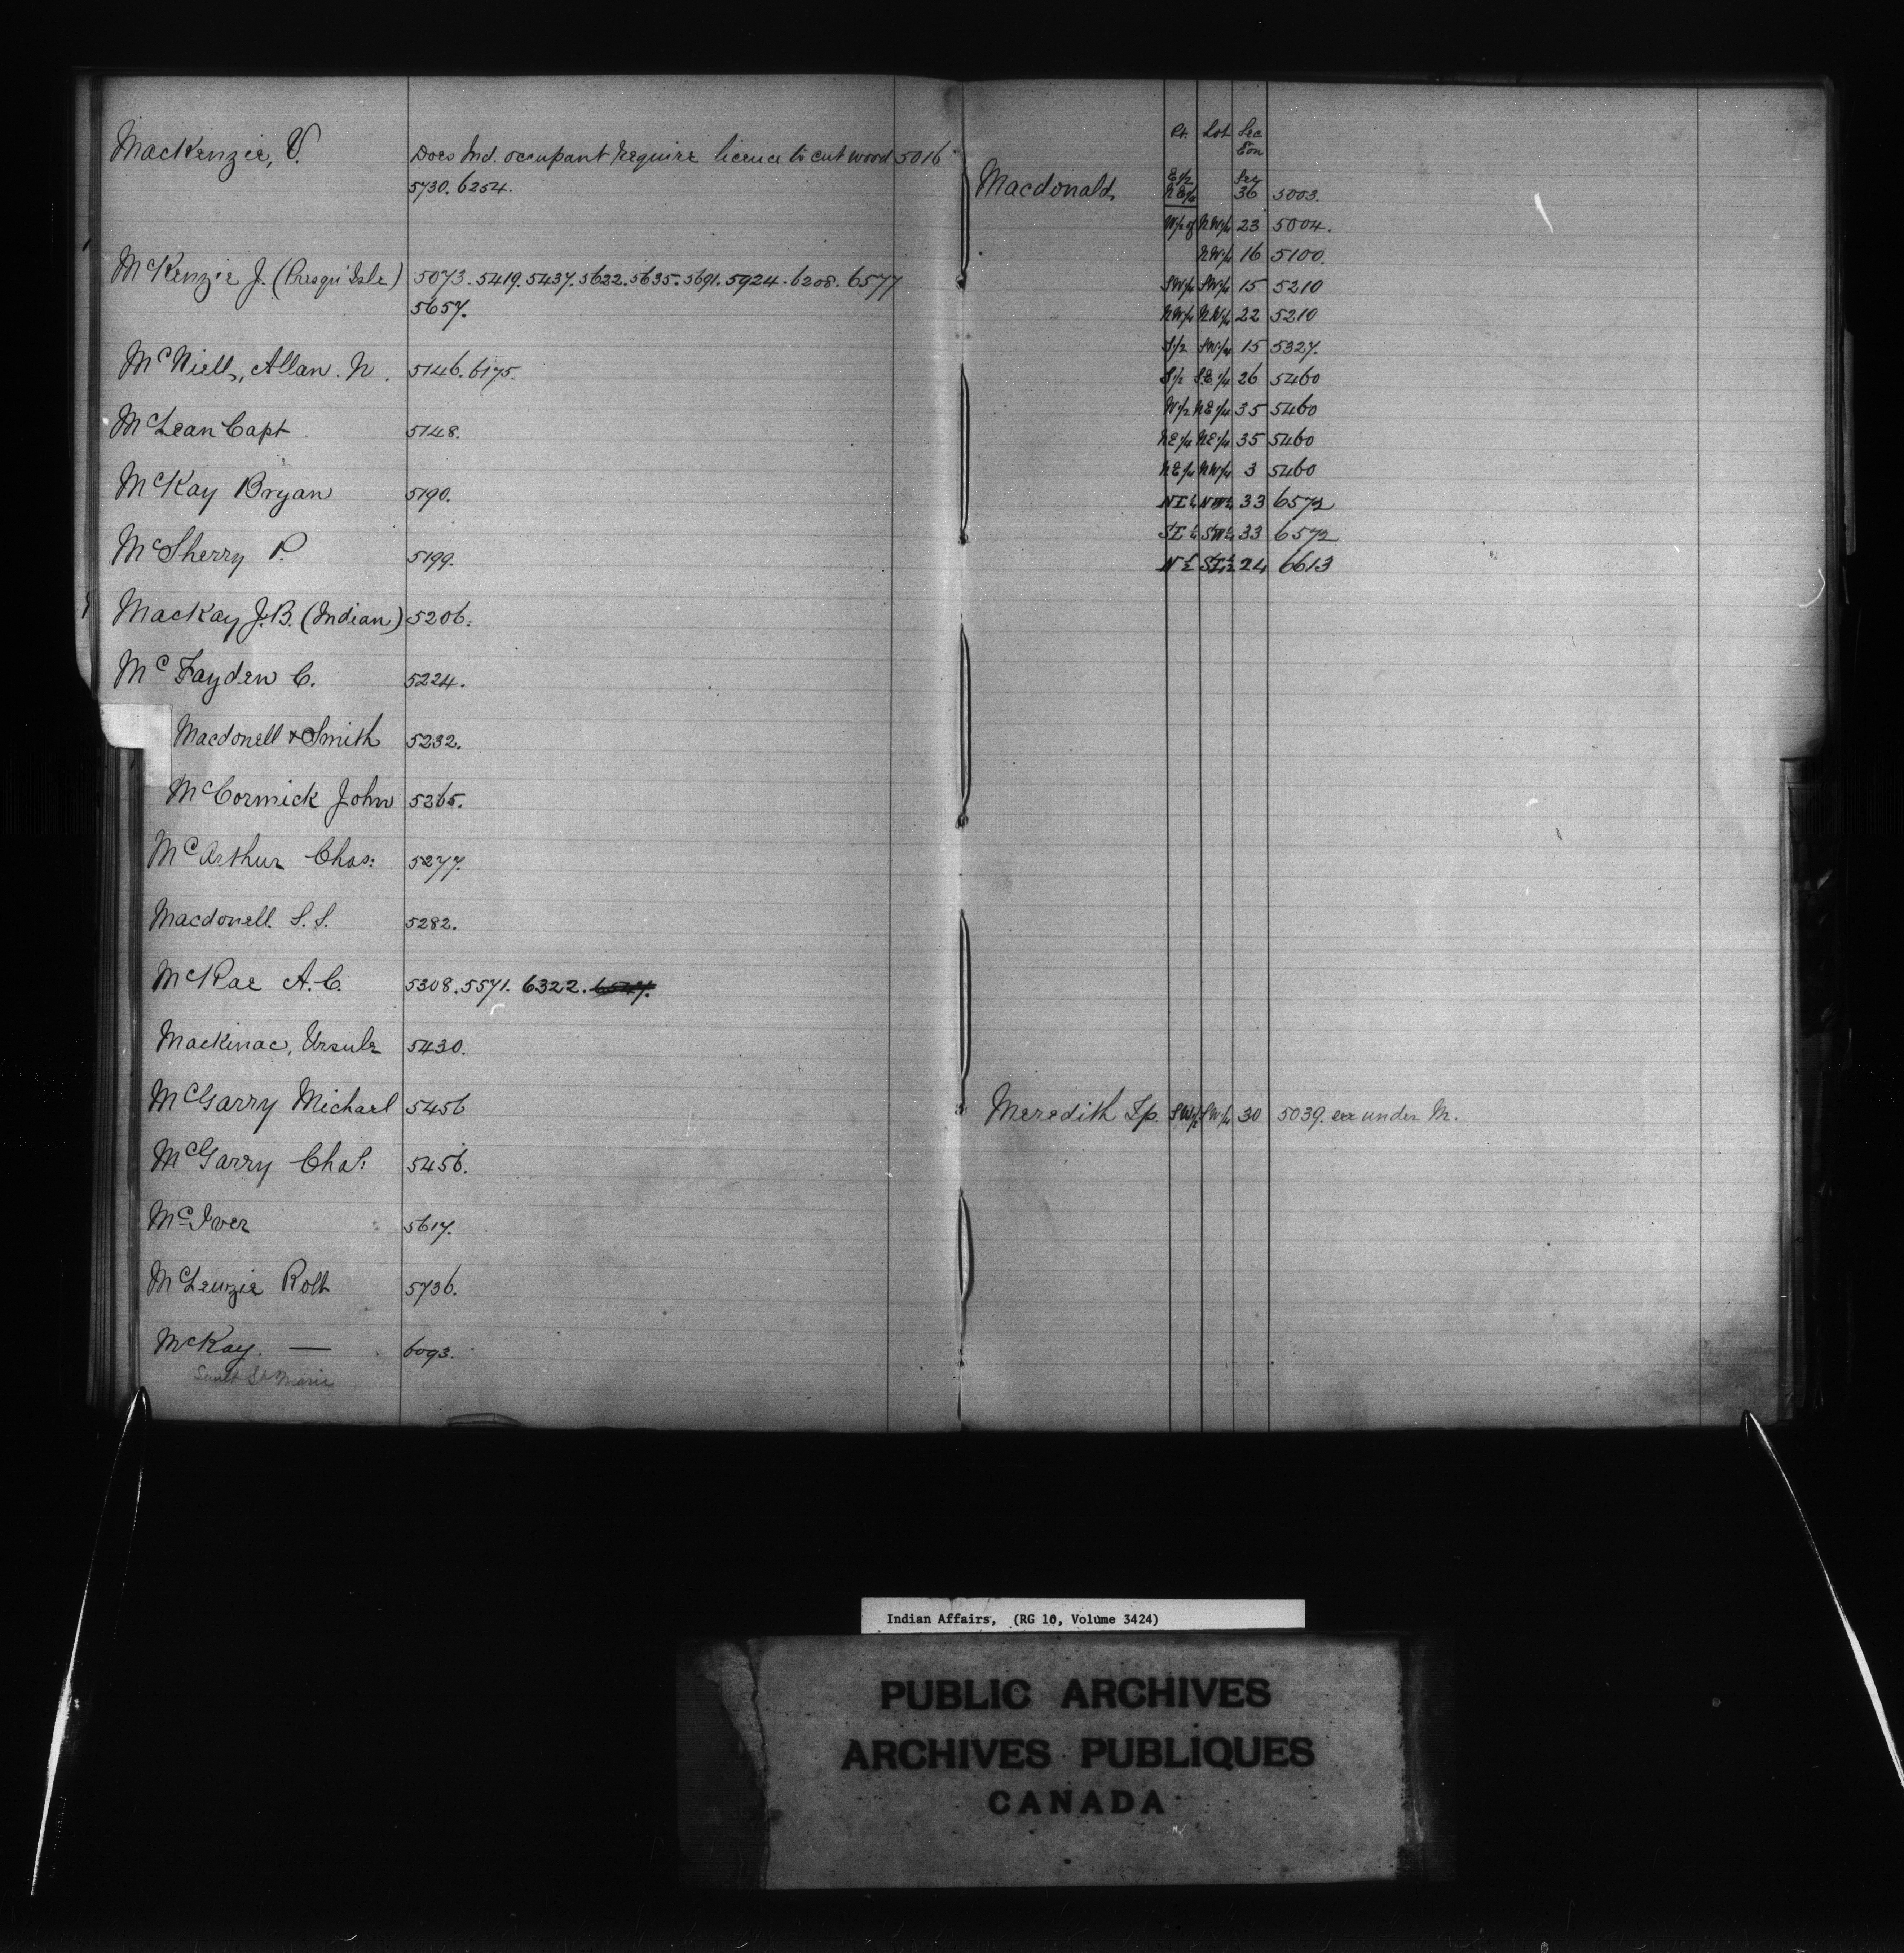 MacKenzie, V. Does Ind. occupant require licence to cut wood 5016
5730. 6254.
McKenzie J. (Presqu'Isle) 5073. 5419. 5437. 5622. 5635. 5691. 5924. 6208. 6577
5657.
McNiell, Allan. N. 5146. 6175.
McLean Capt 5148.
McKay Bryan 5190.
McSherry P. 5199.
MacKay J.B. (Indian) 5206.
McFayden C. 5224.
Macdonell & Smith 5232.
McCormick John 5265.
McArthur Chas: 5277.
Macdonell S. S. 5282.
McRae A. C. 5308. 5571. 6322.
Mackinac, Ursule 5430.
McGarry Michael 5456
McGarry Chas: 5456.
McIver 5617.
McLenzie Robt 5736.
McKay. — 6093.
Sault Ste Marie
Pt. Lot Sec
Con
Macdonald, E 1/2 N E 1/4 Sec 36 5003.
W 1/2 of N W 1/4 23 5004.
N W 1/4 16 5100.
S W 1/4 S W 1/4 15 5210
N W 1/4 N W 1/4 22 5210
S 1/2 S W 1/4 15 5327.
S 1/2 S. E. 1/4 26 5460
W 1/2 N E 1/4 35 5460
N E 1/4 N E 1/4 35 5460
N E 1/4 N W 1/4 3 5460
N E 1/4 N W 1/4 33 6572
S E 1/4 S W 1/4 33 6572
N 1/2 S E 1/4 24 6613
Meredith Tp. S W 1/4 30 5039. see under M.
Indian Affairs, (RG 10, Volume 3424)
PUBLIC ARCHIVES
ARCHIVES PUBLIQUES
CANADA